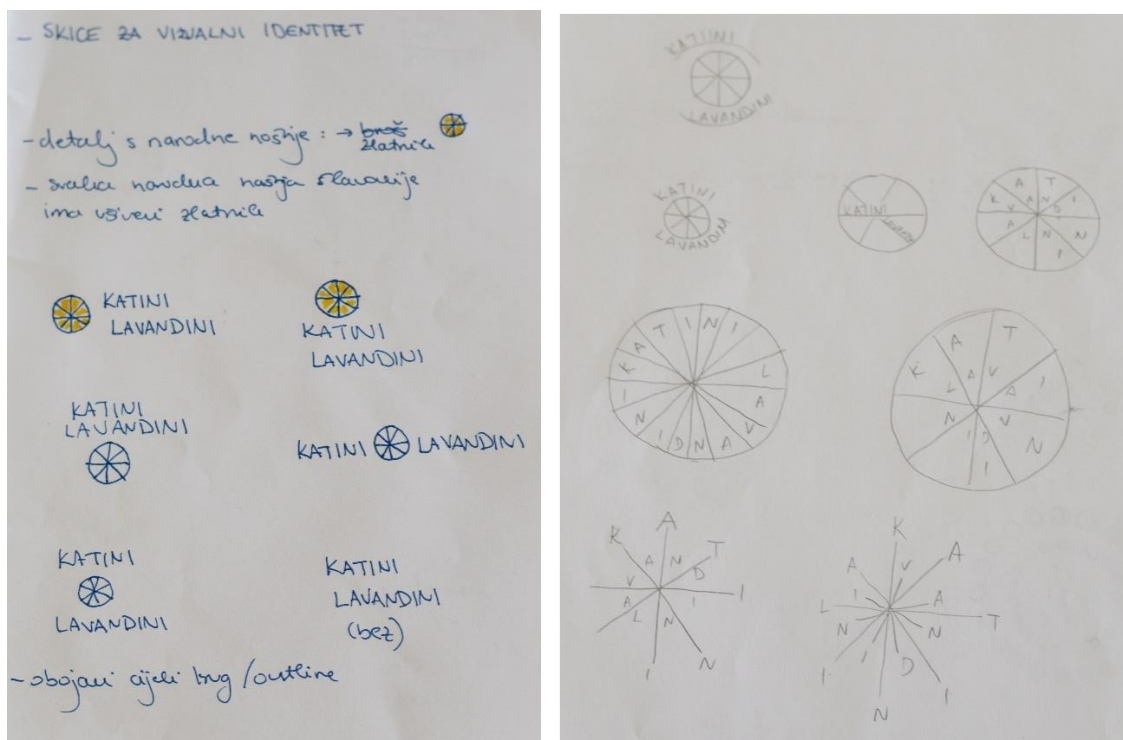 - SKICE ZA VIZUALNI IDENTITET
- detalj s narodne nošnje : → broš
zlatnik
- svaka narodna nošnja Slavonije
ima ušiveni zlatnik
KATINI
LAVANDINI
KATINI
LAVANDINI
KATINI
LAVANDINI
KATINI LAVANDINI
KATINI
LAVANDINI
KATINI
LAVANDINI
(bez)
- obojani cijeli krug / outline
KATIINI
LAVANDINI
KATINI
LAVANDINI
KATINI
K A T I N I
L A V A N D
K A T I N I
L A V A N D I N I
K A T I N I
L A V A N D I
K A T I N I
L A V A N D I
K A T I N I
L A V A N D I N I